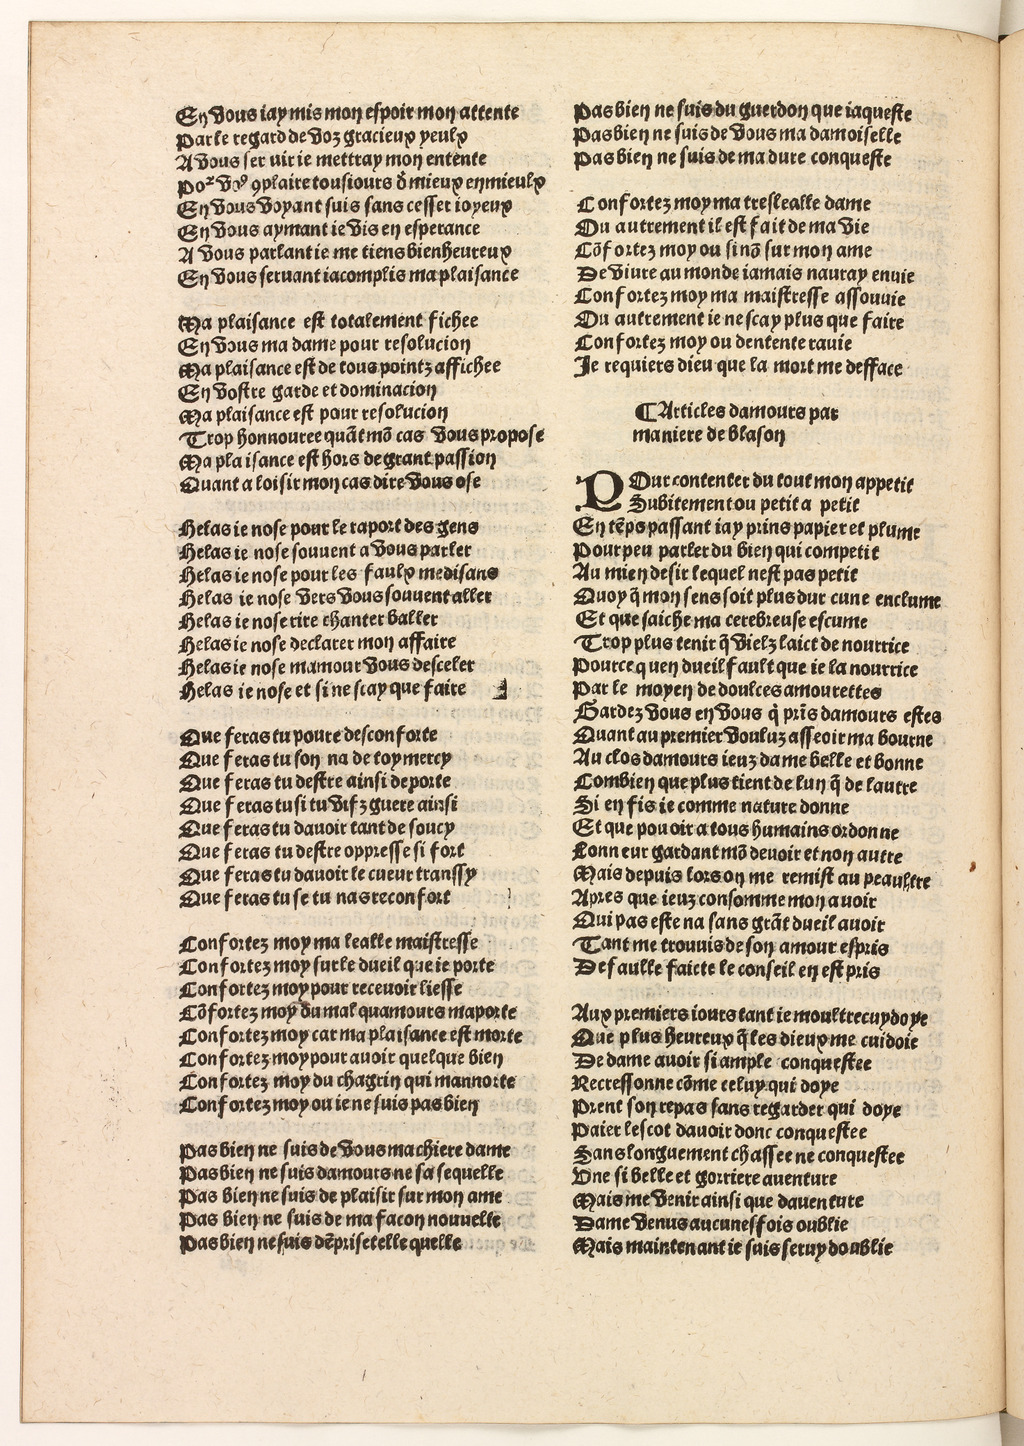 En vous iay mis mon espoir mon attente
Par le regard de voz gracieux yeulx
A vous seruir ie mettray mon entente
Poᷣ voꝰ ꝯplaire tousiours d̄ mieux en mieulx
En vous voyant suis sans cesser ioyeux
En vous aymant ie vis en esperance
A vous parlant ie me tiens bienheureux
En vous seruant iacomplis ma plaisance
Ma plaisance est totalement fichee
En vous ma dame pour resolucion
Ma plaisance est de tous pointz affichee
En vostre garde et dominacion
Ma plaisance est pour resolucion
Trop honnouree quāt mō cas vous propose
Ma plaisance est hors de grant passion
Quant a loisir mon cas dire vous ose
Helas ie nose pour le raport des gens
Helas ie nose souuent a vous parler
Helas ie nose pour les faulx medisans
Helas ie nose vers vous souuent aller
Helas ie nose rire chanter baller
Helas ie nose declarer mon affaire
Helas ie nose mamour vous desceler
Helas ie nose et si ne scay que faire
Que feras tu poure desconforte
Que feras tu son na de toy mercy
Que feras tu destre ainsi deporte
Que feras tu si tu vifz guere ainsi
Que feras tu dauoir tant de soucy
Que feras tu destre oppresse si fort
Que feras tu dauoir le cueur transsy
Que feras tu se tu nas reconfort
Confortez moy ma lealle maistresse
Confortez moy sur le dueil que ie porte
Confortez moy pour receuoir liesse
Cōfortez moy du mal quamours maporte
Confortez moy car ma plaisance est morte
Confortez moy pour auoir quelque bien
Confortez moy du chagrin qui mannorte
Confortez moy ou ie ne suis pas bien
Pas bien ne suis de vous ma chiere dame
Pas bien ne suis damours ne sa sequelle
Pas bien ne suis de plaisir sur mon ame
Pas bien ne suis de ma facon nouuelle
Pas bien ne suis dēprise telle quelle
Pas bien ne suis du guerdon que iaqueste
Pas bien ne suis de vous ma damoiselle
Pas bien ne suis de ma dure conqueste
Confortez moy ma treslealle dame
Ou autrement il est fait de ma vie
Cōfortez moy ou sinō sur mon ame
De viure au monde iamais nauray enuie
Confortez moy ma maistresse assouuie
Ou autrement ie ne scay plus que faire
Confortez moy ou dentente rauie
Je requiers dieu que la mort me defface
¶Articles damours par
maniere de blason
POur contenter du tout mon appetit
Subitement ou petit a petit
En tēps passant iay prins papier et plume
Pour peu parler du bien qui competit
Au mien desir lequel nest pas petit
Quoy q̄ mon sens soit plus dur cune enclume
Et que saiche ma cerebreuse escume
Trop plus tenir q̄ vielz laict de nourrice
Pource quen dueil fault que ie la nourrice
Par le moyen de doulces amourettes
Gardez vous en vous q̇ prīs damours estes
Quant au premier vouluz asseoir ma bourne
Au clos damours ieuz dame belle et bonne
Combien que plus tient de lun q̄ de lautre
Si en fis ie comme nature donne
Et que pouoir a tous humains ordonne
Lonneur gardant mō deuoir et non autre
Mais depuis lors on me remist au peaultre
Apres que ieuz consomme mon auoir
Qui pas este na sans grāt dueil auoir
Tant me trouuis de son amour espris
Defaulle faicte le conseil en est pris
Aux premiers iours tant ie moultrecuydoye
Que plus heureux q̄ les dieux me cuidoie
De dame auoir si ample conquestee
Recressonne cōme celuy qui doye
Prent son repas sans regarder qui doye
Paier lescot dauoir donc conquestee
Sans longuement chassee ne conquestee
Vne si belle et gorriere auenture
Mais me venir ainsi que dauenture
Dame venus aucunesfois oublie
Mais maintenant ie suis seruy doublie